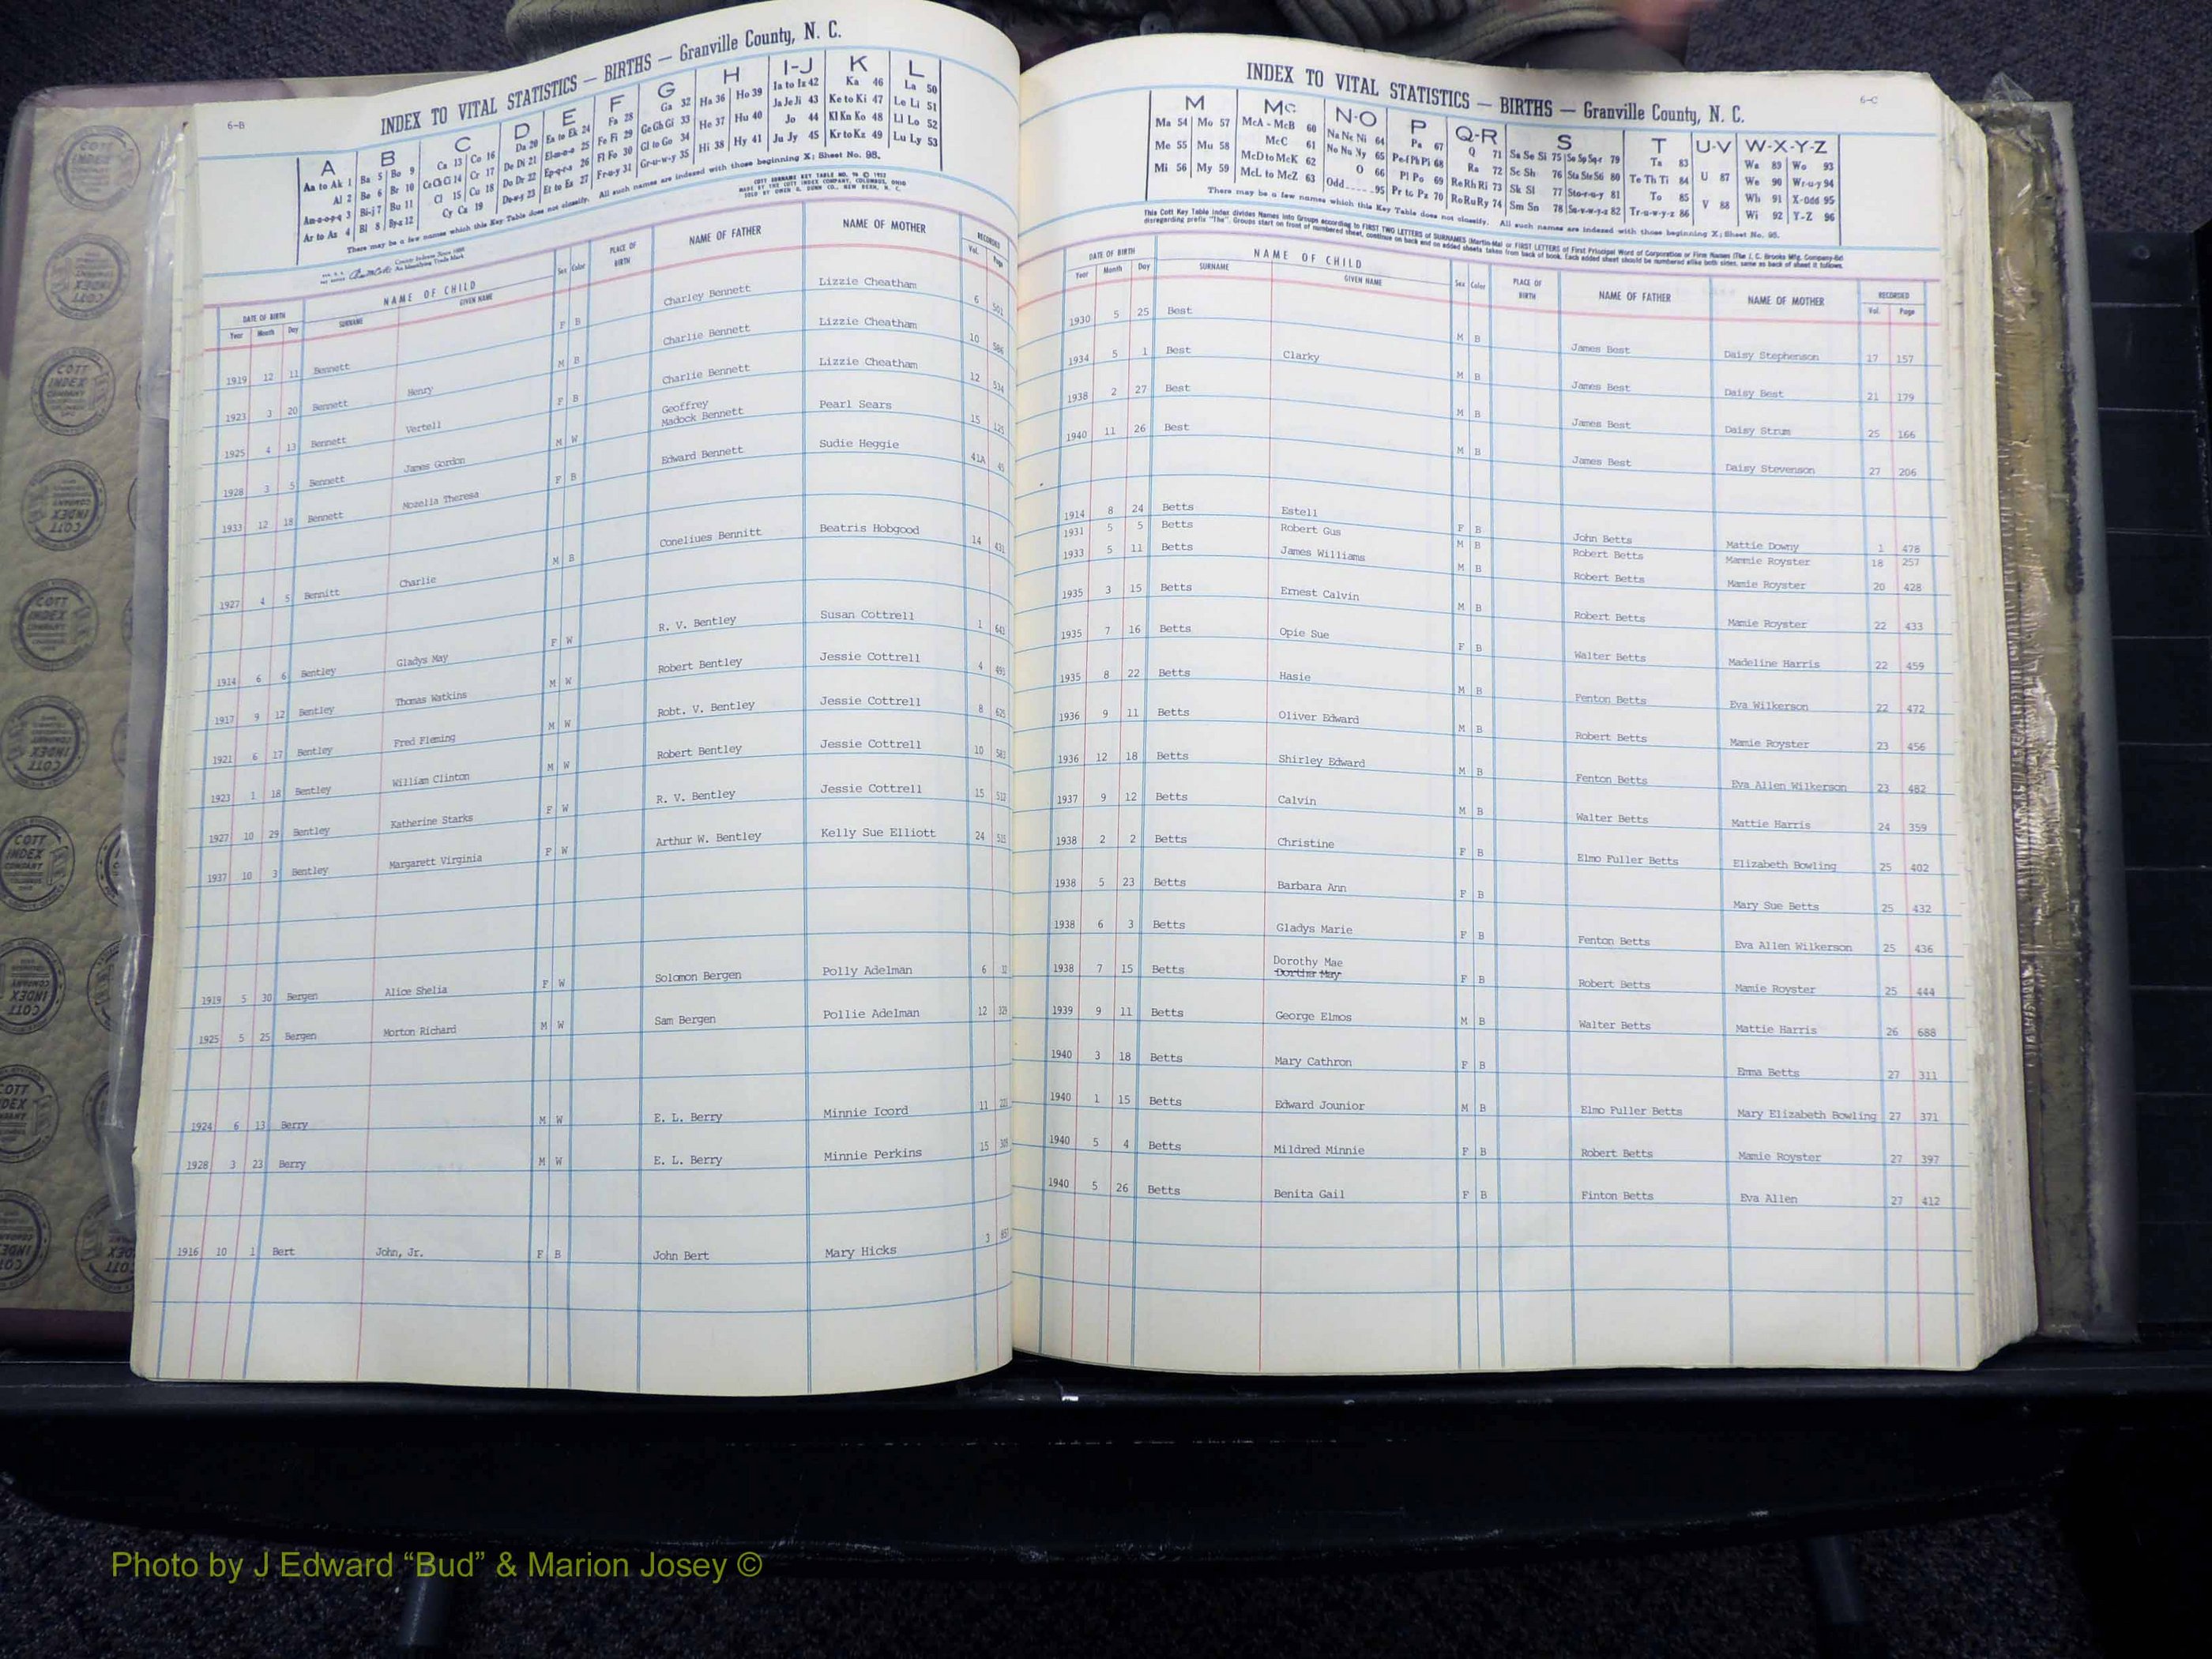 6-B
INDEX TO VITAL STATISTICS — BIRTHS — Granville County, N. C.
A B C D E F G H I-J K L
Aa to Ak 1 Ba 5 Bo 9 Ca 13 Co 16 Da 20 Ea to Ek 24 Fa 28 Ga 32 Ha 36 Ho 39 Ia to Iz 42 Ka 46 La 50
Al 2 Be 6 Br 10 Ce Ch Ci 14 Cr 17 De Di 21 Fe Fi 29 Ge Gh Gi 33 He 37 Hu 40 Ja Je Ji 43 Ke to Ki 47 Le Li 51
Am-n-o-p-q 3 Bi-j 7 Bu 11 Cl 15 Cu 18 Do Dr 22 Ep-q-r-s 26 Fl Fo 30 Gl to Go 34 Hi 38 Hy 41 Jo 44 Kl Kn Ko 48 Ll Lo 52
Ar to Az 4 Bl 8 By-z 12 Cy Cz 19 Du-w-y 23 Et to Ez 27 Fr-u-y 31 Gr-u-w-y 35 Ju Jy 45 Kr to Kz 49 Lu Ly 53
There may be a few names which this Key Table does not classify. All such names are indexed with those beginning X; Sheet No. 98.
DATE OF BIRTH NAME OF CHILD Sex Color PLACE OF BIRTH NAME OF FATHER NAME OF MOTHER RECORDED
Year Month Day SURNAME GIVEN NAME Vol. Page
1919 12 11 Bennett F B Charley Bennett Lizzie Cheatham 6 501
1923 3 20 Bennett Henry M B Charlie Bennett Lizzie Cheatham 10 586
1925 4 13 Bennett Vertell F B Charlie Bennett Lizzie Cheatham 12 534
1928 3 5 Bennett James Gordon M W Geoffrey Madock Bennett Pearl Sears 15 125
1933 12 18 Bennett Mozella Theresa F B Edward Bennett Sudie Heggie 41A 45
1927 4 5 Bennitt Charlie M B Coneliues Bennitt Beatris Hobgood 14 431
1914 6 6 Bentley Gladys May F W R. V. Bentley Susan Cottrell 1 642
1917 9 12 Bentley Thomas Watkins M W Robert Bentley Jessie Cottrell 4 493
1921 6 17 Bentley Fred Fleming M W Robt. V. Bentley Jessie Cottrell 8 625
1923 1 18 Bentley William Clinton M W Robert Bentley Jessie Cottrell 10 583
1927 10 29 Bentley Katherine Starks F W R. V. Bentley Jessie Cottrell 15 512
1937 10 3 Bentley Margarett Virginia F W Arthur W. Bentley Kelly Sue Elliott 24 515
1919 5 30 Bergen Alice Shelia F W Solomon Bergen Polly Adelman 6
1925 5 25 Bergen Morton Richard M W Sam Bergen Pollie Adelman 12
1924 6 13 Berry M W E. L. Berry Minnie Icord 11
1928 3 23 Berry M W E. L. Berry Minnie Perkins 15
1916 10 1 Bert John, Jr. F B John Bert Mary Hicks 3
6-C
INDEX TO VITAL STATISTICS — BIRTHS — Granville County, N. C.
M Mc N-O P Q-R S T U-V W-X-Y-Z
Ma 54 Mo 57 McA - McB 60 Na Ne Ni 64 Pa 67 Q 71 Sa Se Si 75 So Sp Sq-r 79 Ta 83 Wa 89 Wo 93
Me 55 Mu 58 McC 61 No Nu Ny 65 Pe-f Ph Pi 68 Ra 72 Sc Sh 76 Sta Ste S6 80 Te Th Ti 84 U 87 We 90 Wr-u-y 94
Mi 56 My 59 McD to McK 62 O 66 Pl Po 69 Re Rh Ri 73 Sk Sl 77 Sto-r-u-y 81 To 85 Wh 91 X-Odd 95
McL to McZ 63 Odd 95 Pr to Pz 70 Ro Ru Ry 74 Sm Sn 78 Su-v-w-y-z 82 Tr-u-w-y-z 86 V 88 Wi 92 Y-Z 96
There may be a few names which this Key Table does not classify. All such names are indexed with those beginning X; Sheet No. 98.
DATE OF BIRTH NAME OF CHILD Sex Color PLACE OF BIRTH NAME OF FATHER NAME OF MOTHER RECORDED
Year Month Day SURNAME GIVEN NAME Vol. Page
1930 5 25 Best M B James Best Daisy Stephenson 17 157
1934 5 1 Best Clarky M B James Best Daisy Best 21 179
1938 2 27 Best M B James Best Daisy Strum 25 166
1940 11 26 Best M B James Best Daisy Stevenson 27 206
1914 8 24 Betts Estell F B John Betts Mattie Downy 1 478
1931 5 5 Betts Robert Gus M B Robert Betts Mammie Royster 18 257
1933 5 11 Betts James Williams M B Robert Betts Mamie Royster 20 428
1935 3 15 Betts Ernest Calvin M B Robert Betts Mamie Royster 22 433
1935 7 16 Betts Opie Sue F B Walter Betts Madeline Harris 22 459
1935 8 22 Betts Hasie M B Fenton Betts Eva Wilkerson 22 472
1936 9 11 Betts Oliver Edward M B Robert Betts Mamie Royster 23 456
1936 12 18 Betts Shirley Edward M B Fenton Betts Eva Allen Wilkerson 23 482
1937 9 12 Betts Calvin M B Walter Betts Mattie Harris 24 359
1938 2 2 Betts Christine F B Elmo Fuller Betts Elizabeth Bowling 25 402
1938 5 23 Betts Barbara Ann F B Mary Sue Betts 25 432
1938 6 3 Betts Gladys Marie F B Fenton Betts Eva Allen Wilkerson 25 436
1938 7 15 Betts Dorothy Mae Dorther May F B Robert Betts Mamie Royster 25 444
1939 9 11 Betts George Elmos M B Walter Betts Mattie Harris 26 688
1940 3 18 Betts Mary Cathron F B Emma Betts 27 311
1940 1 15 Betts Edward Jounior M B Elmo Fuller Betts Mary Elizabeth Bowling 27 371
1940 5 4 Betts Mildred Minnie F B Robert Betts Mamie Royster 27 397
1940 5 26 Betts Benita Gail F B Finton Betts Eva Allen 27 412
COTT INDEX COMPANY
Photo by J Edward “Bud” & Marion Josey ©